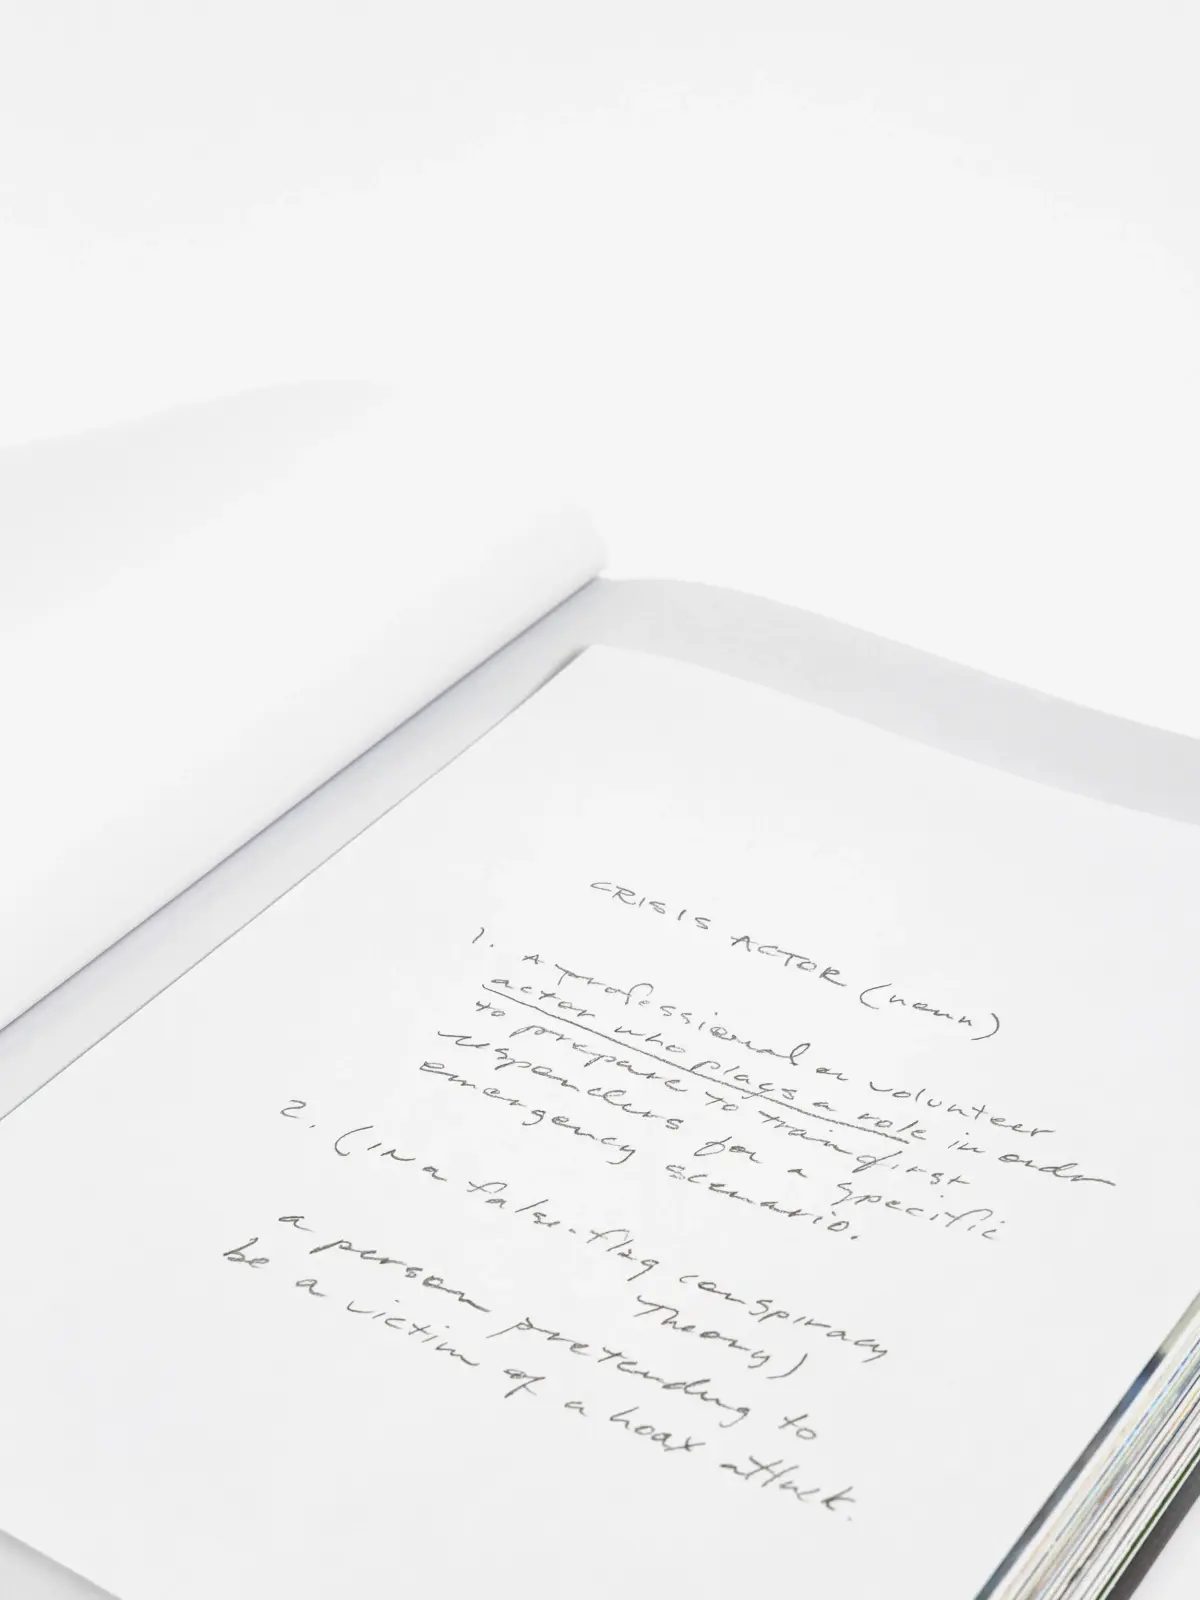 CRISIS ACTOR (noun)
1. A professional or volunteer
actor who plays a role in order
to prepare to train first
responders for a specific
emergency scenario.
2. (IN a false-flag conspiracy
Theory)
a person pretending to
be a victim of a hoax attack.